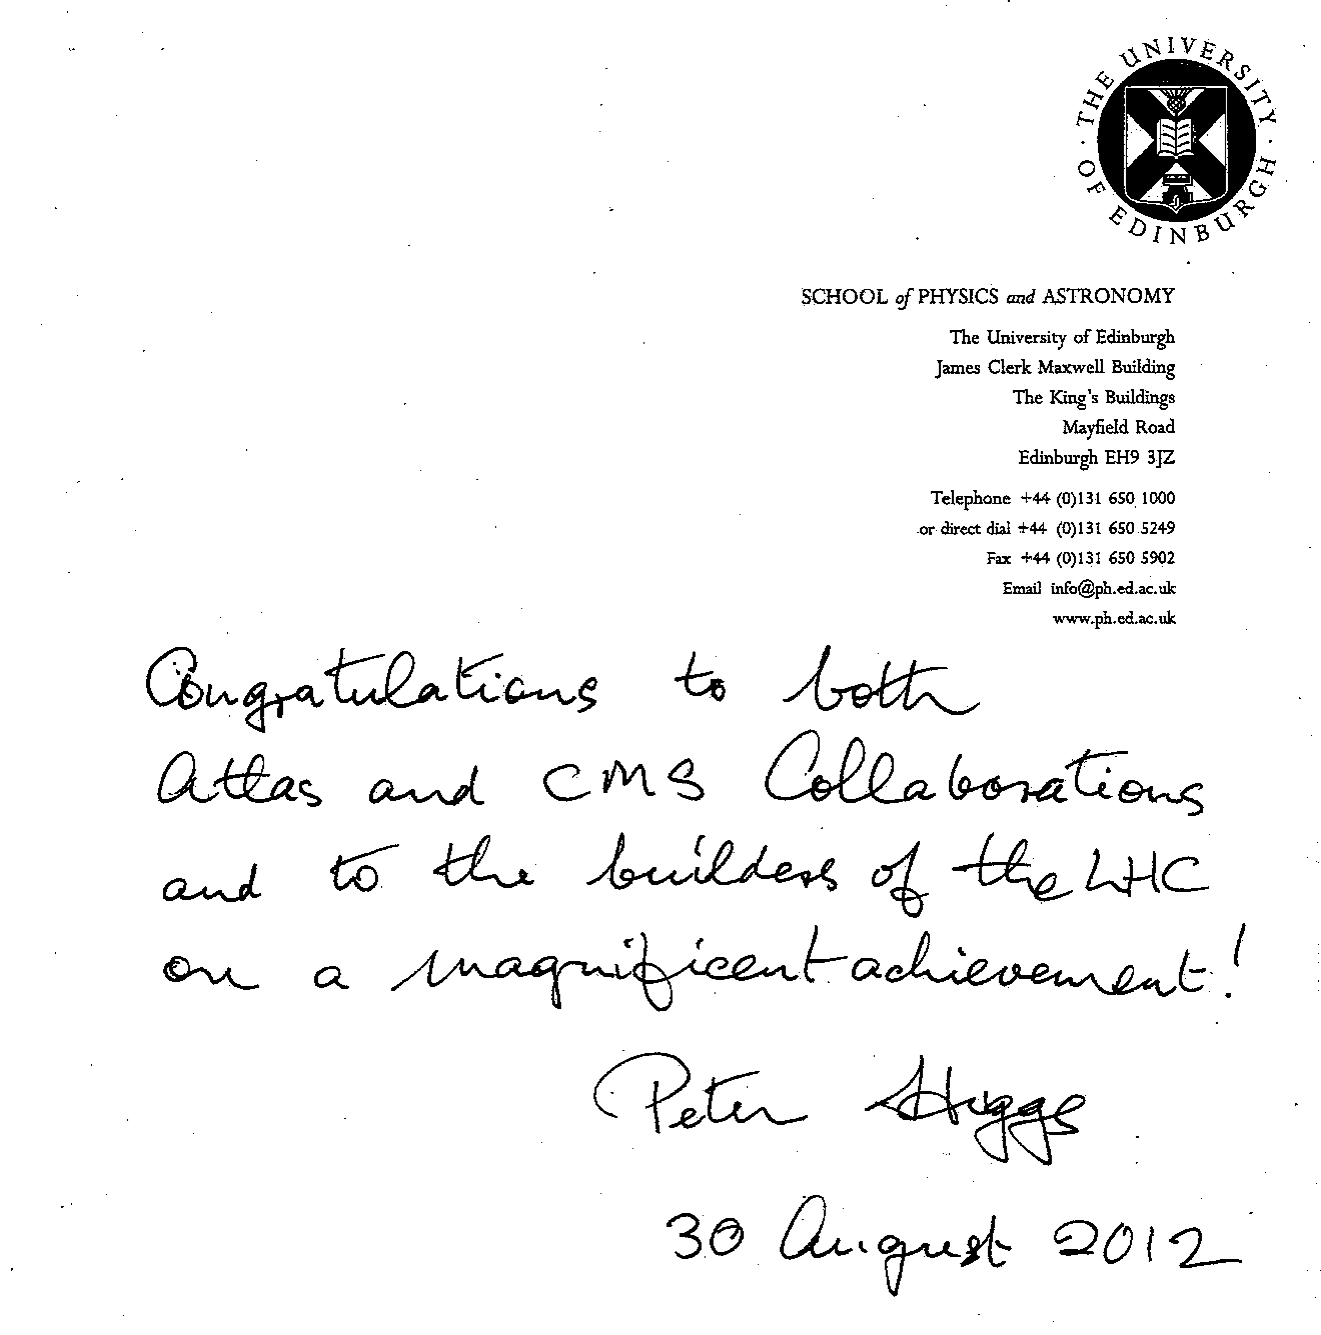 · THE UNIVERSITY · OF EDINBURGH
SCHOOL of PHYSICS and ASTRONOMY
The University of Edinburgh
James Clerk Maxwell Building
The King's Buildings
Mayfield Road
Edinburgh EH9 3JZ
Telephone +44 (0)131 650 1000
or direct dial +44 (0)131 650 5249
Fax +44 (0)131 650 5902
Email info@ph.ed.ac.uk
www.ph.ed.ac.uk
Congratulations to both
Atlas and CMS Collaborations
and to the builders of the LHC
on a magnificent achievement!
Peter Higgs
30 August 2012